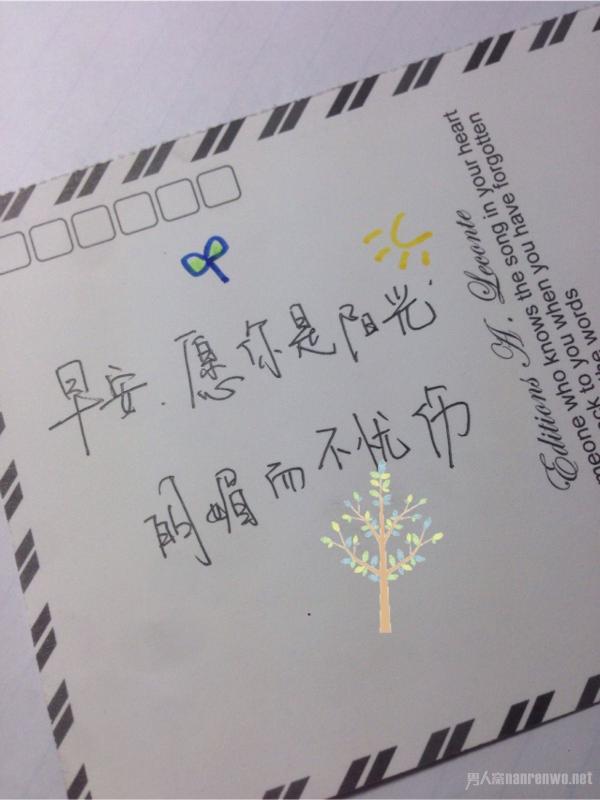 早安.愿你是阳光
明媚而不忧伤
Editions
meone who knows the song in your heart
ck to you when you have forgotten
the words
男人窝nanrenwo.net